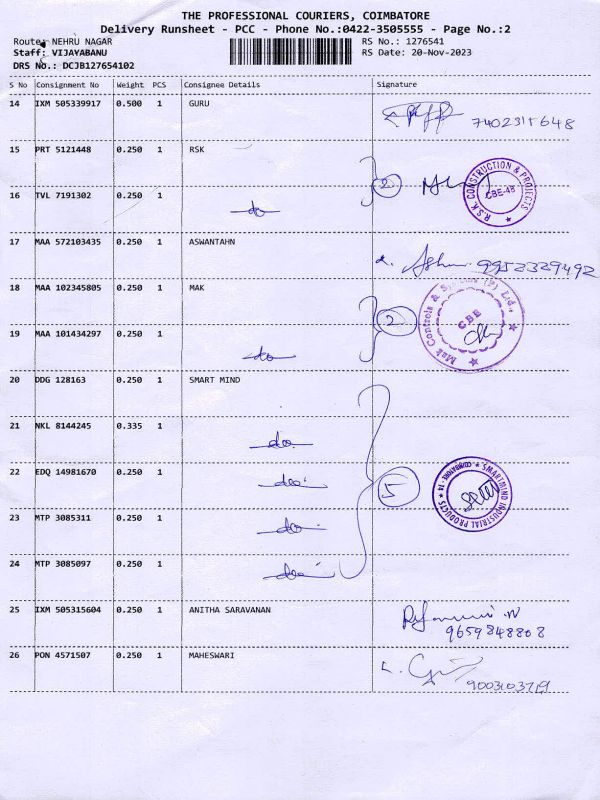 THE PROFESSIONAL COURIERS, COIMBATORE
Delivery Runsheet - PCC - Phone No.:0422-3505555 - Page No.:2
Route: NEHRU NAGAR RS No.: 1276541
Staff: VIJAYABANU RS Date: 20-Nov-2023
DRS No.: DCJB127654102
S No Consignment No Weight PCS Consignee Details Signature
14 IXM 505339917 0.500 1 GURU
7402315648
15 PRT 5121448 0.250 1 RSK
2
R.S.K CONSTRUCTION & PROJECTS
CBE-43
16 TVL 7191302 0.250 1
do
17 MAA 572103435 0.250 1 ASWANTAHN
9952329492
18 MAA 102345805 0.250 1 MAK
2
Mak Controls & Systems (P) Ltd.,
CBE
19 MAA 101434297 0.250 1
do
20 DDG 128163 0.250 1 SMART MIND
21 NKL 8144245 0.335 1
do
22 EDQ 14981670 0.250 1
do
5
SMARTMIND INDUSTRIAL PRODUCTS * COIMBATORE - 14 *
23 MTP 3085311 0.250 1
do
24 MTP 3085097 0.250 1
do
25 IXM 505315604 0.250 1 ANITHA SARAVANAN
9659848808
26 PON 4571507 0.250 1 MAHESWARI
9003103719